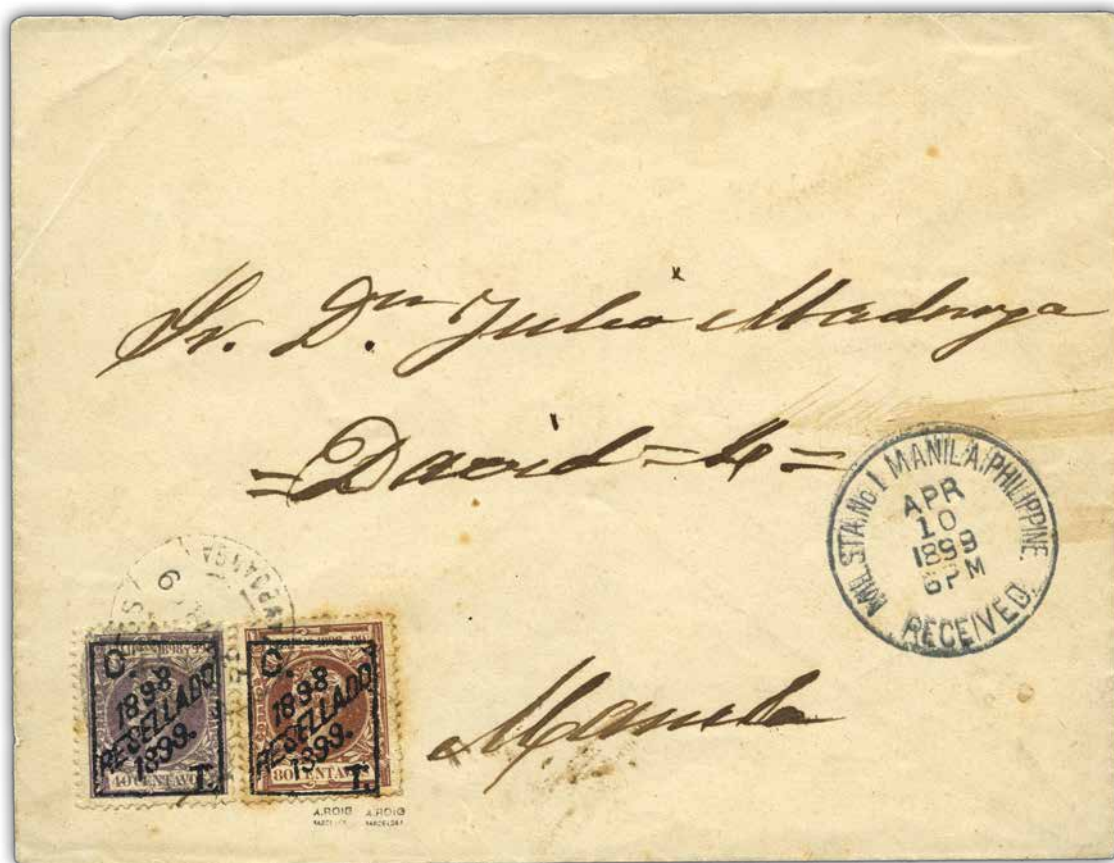 Sr. Dn Julio Madruga
= David = 4 =
MIL. STA. No 1 MANILA, PHILIPPINE
APR
10
1899
6PM
RECEIVED.
Manila
C.
1898
RESELLADO
1899.
T.
40 CENTAVOS
C.
1898
RESELLADO
1899.
T.
80 CENTAVOS
A.ROIG A.ROIG
BARCELONA BARCELONA